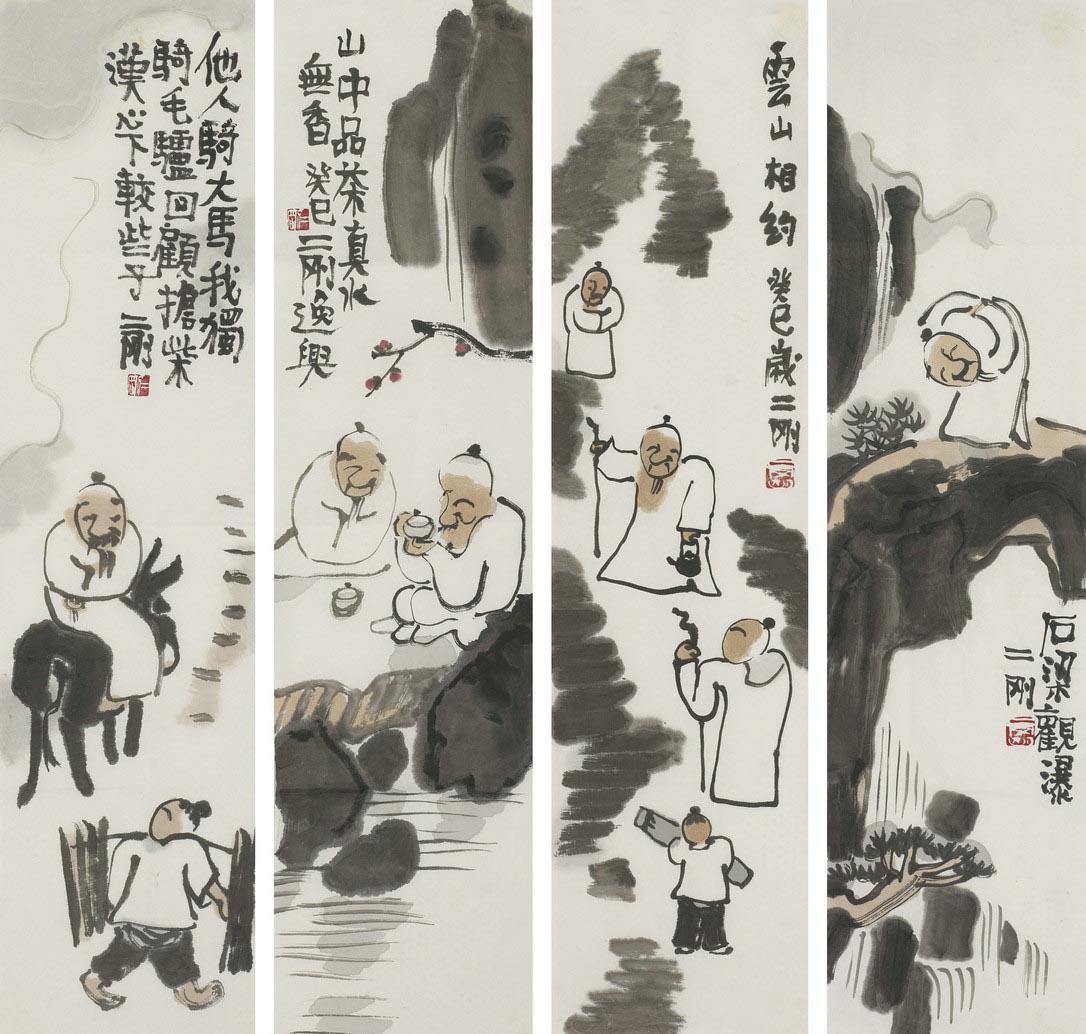 他人騎大馬我獨
騎毛驢回顧擔柴
漢心下較些子二剛
山中品茶真水
無香癸巳二剛逸興
雲山相約癸巳歲二剛
石梁觀瀑
二剛